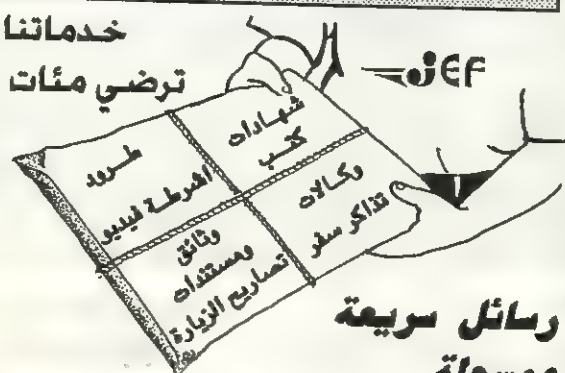 خدماتنا
ترضي مئات
JEF
شهادات
كتب
طرود
اشرطة فيديو
وكالات
تذاكر سفر
وثائق
ومستندات
تصاريح الزيارة
رسائل سريعة